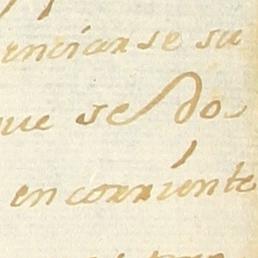 enciarse su
que se do
en corriente